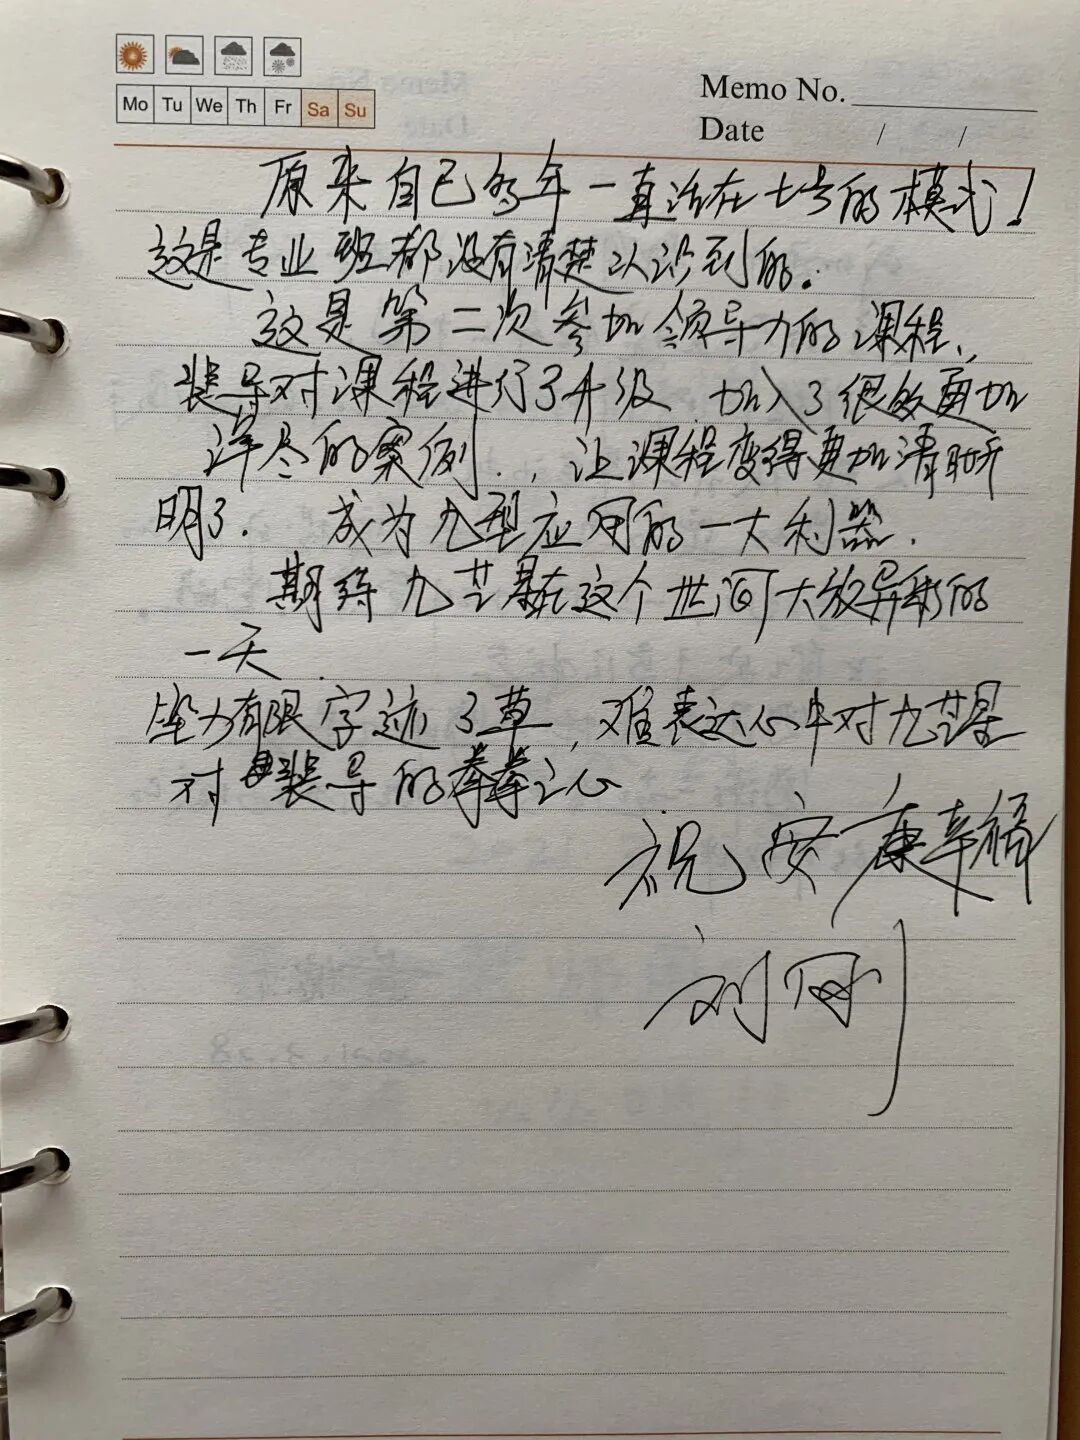 Mo Tu We Th Fr Sa Su
Memo No.
Date / /
原来自己多年一直活在七号的模式！
这是专业班都没有清楚认识到的.
这是第二次参加领导力的课程.,
裴导对课程进行了升级 加入了很多更加
详尽的案例.,让课程变得更加清晰
明了. 成为九型应用的一大利器.
期待九芒星在这个世间大放异彩的
一天.
笔力有限字迹了草,难表达心中对九芒星
对裴导的拳拳之心
祝安康幸福
刘刚